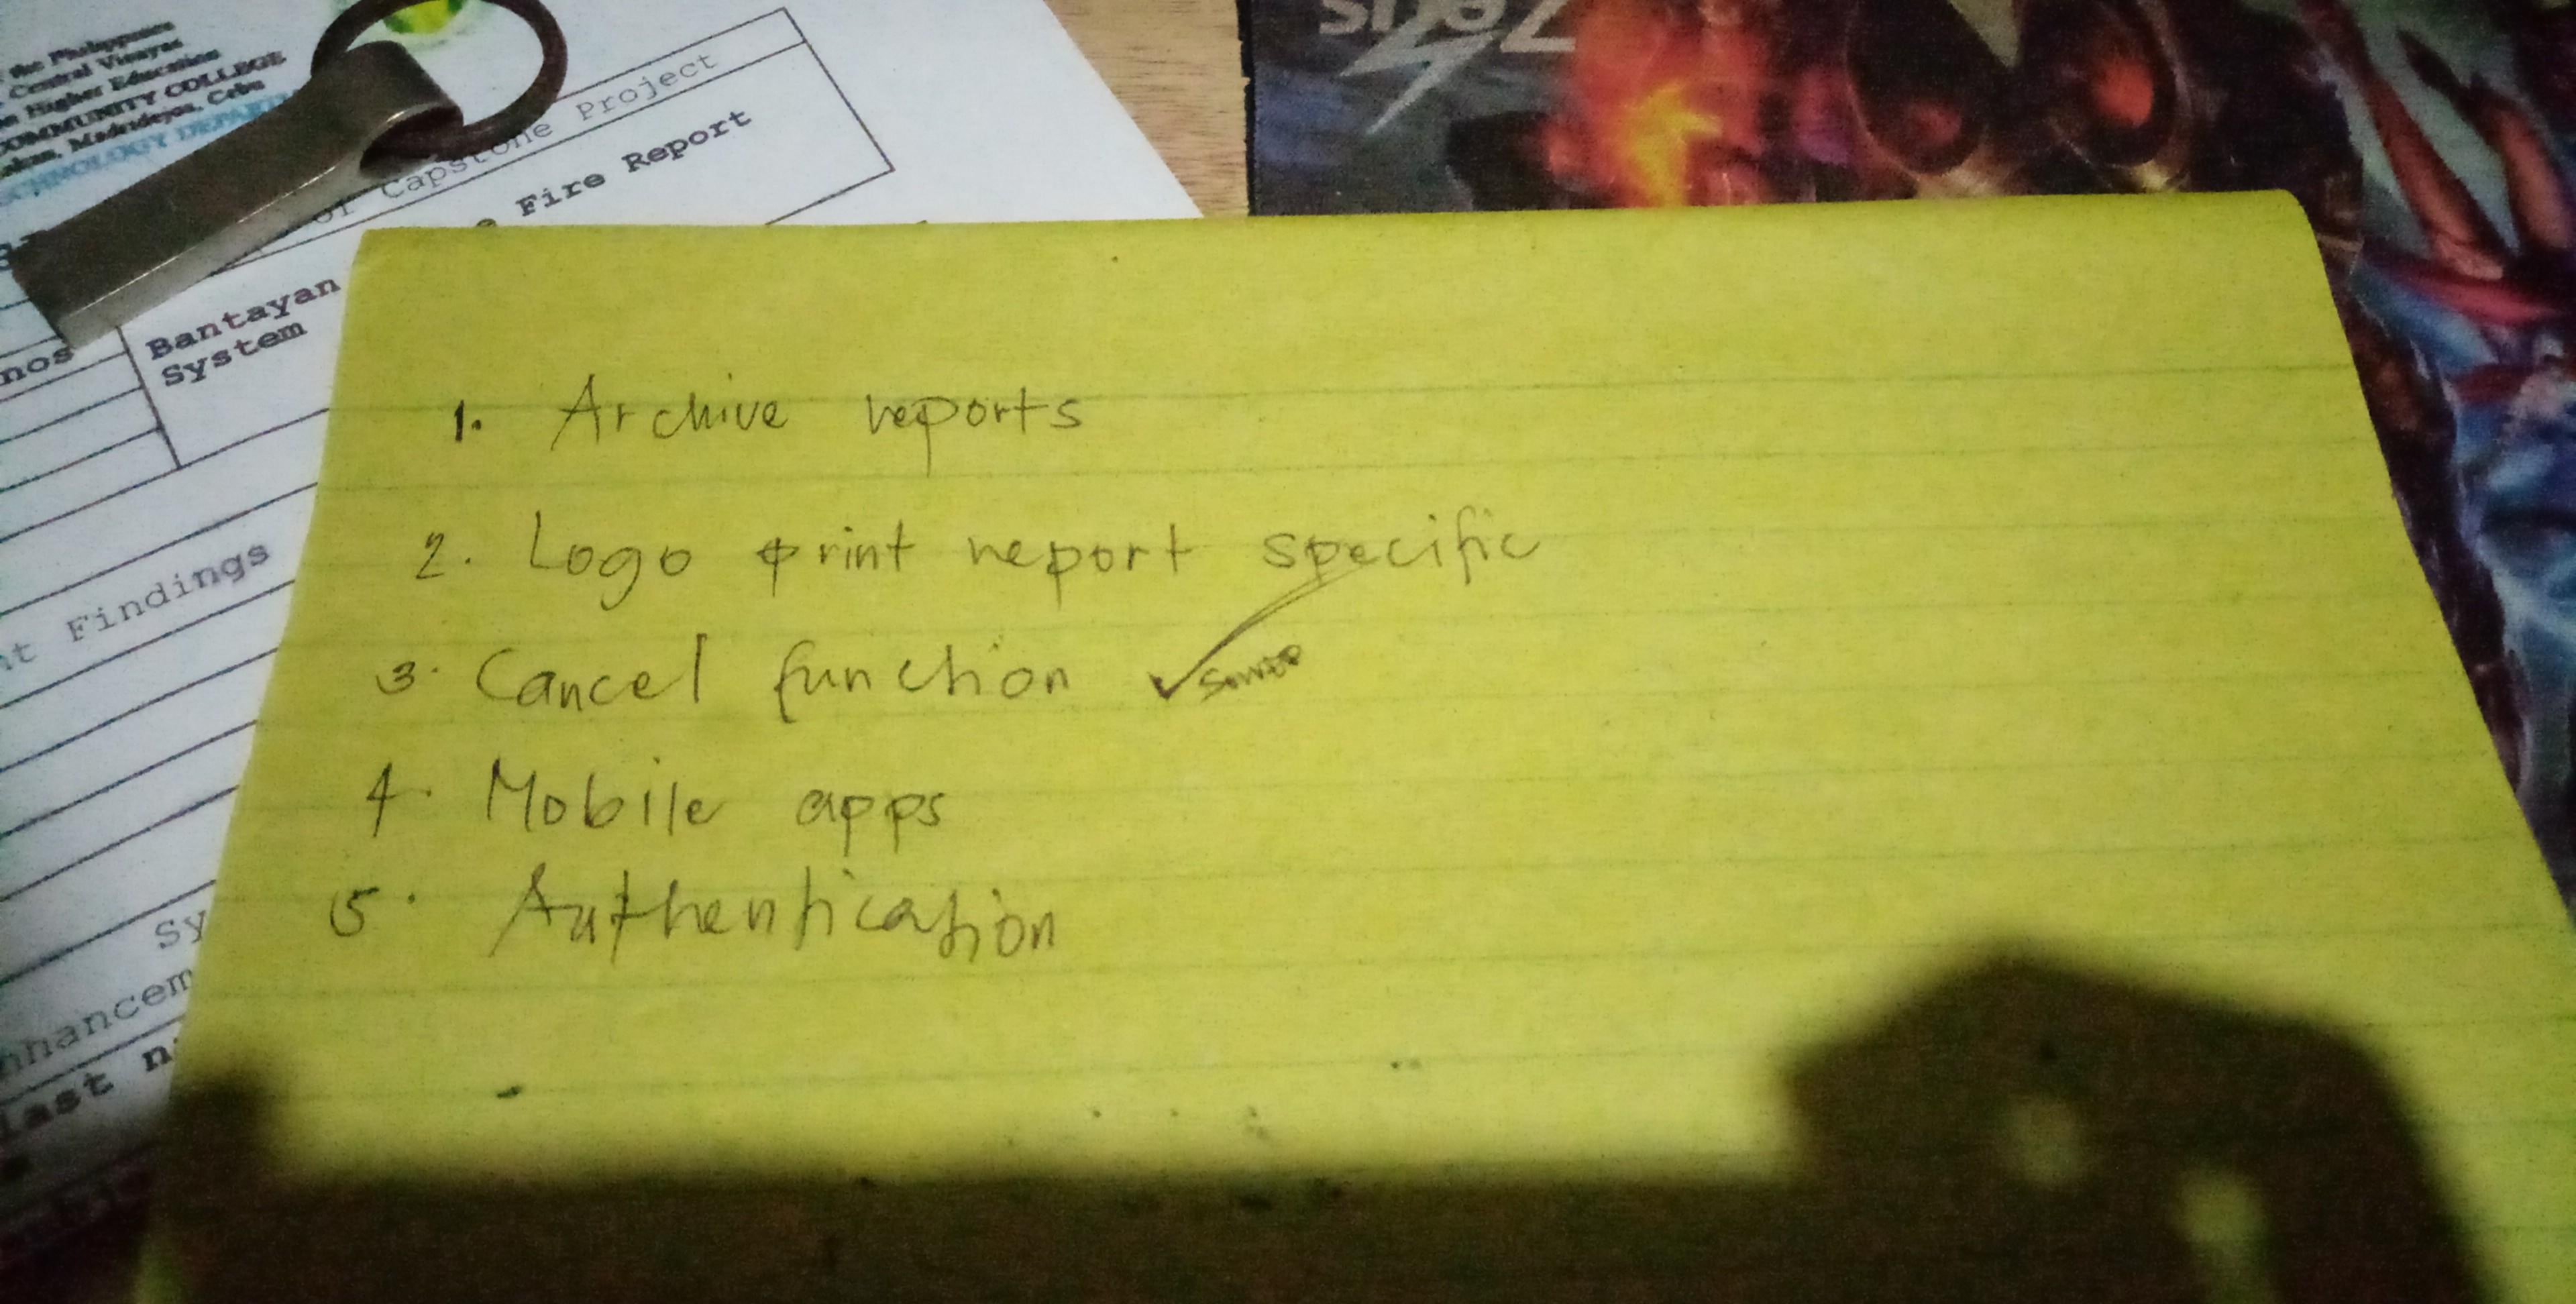 the Philippines
Central Visayas
Higher Education
COMMUNITY COLLEGE
Madridejos, Cebu
of Capstone Project
Fire Report
Bantayan
System
Findings
Zeus
1. Archive reports
2. Logo print report specific
3. Cancel function ✓
4. Mobile apps
5. Authentication
last